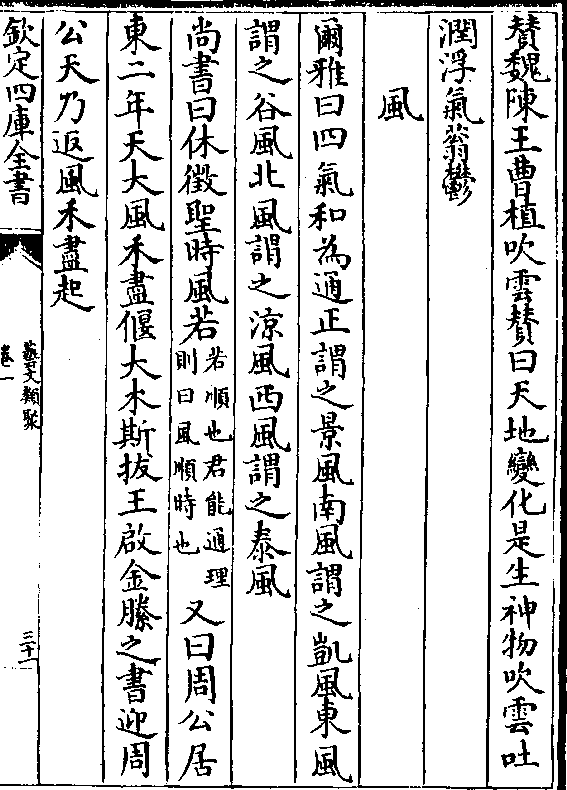 賛魏陳王曹植吹雲賛曰天地變化是生神物吹雲吐
潤浮氣蓊鬱
風
爾雅曰四氣和為通正謂之景風南風謂之凱風東風
謂之谷風北風謂之涼風西風謂之泰風
尚書曰休徴聖時風若若順也君能通理則曰風順時也又曰周公居
東二年天大風禾盡偃大木斯拔王啟金縢之書迎周
公天乃返風禾盡起
欽定四庫全書
藝文類聚
卷一
三十一